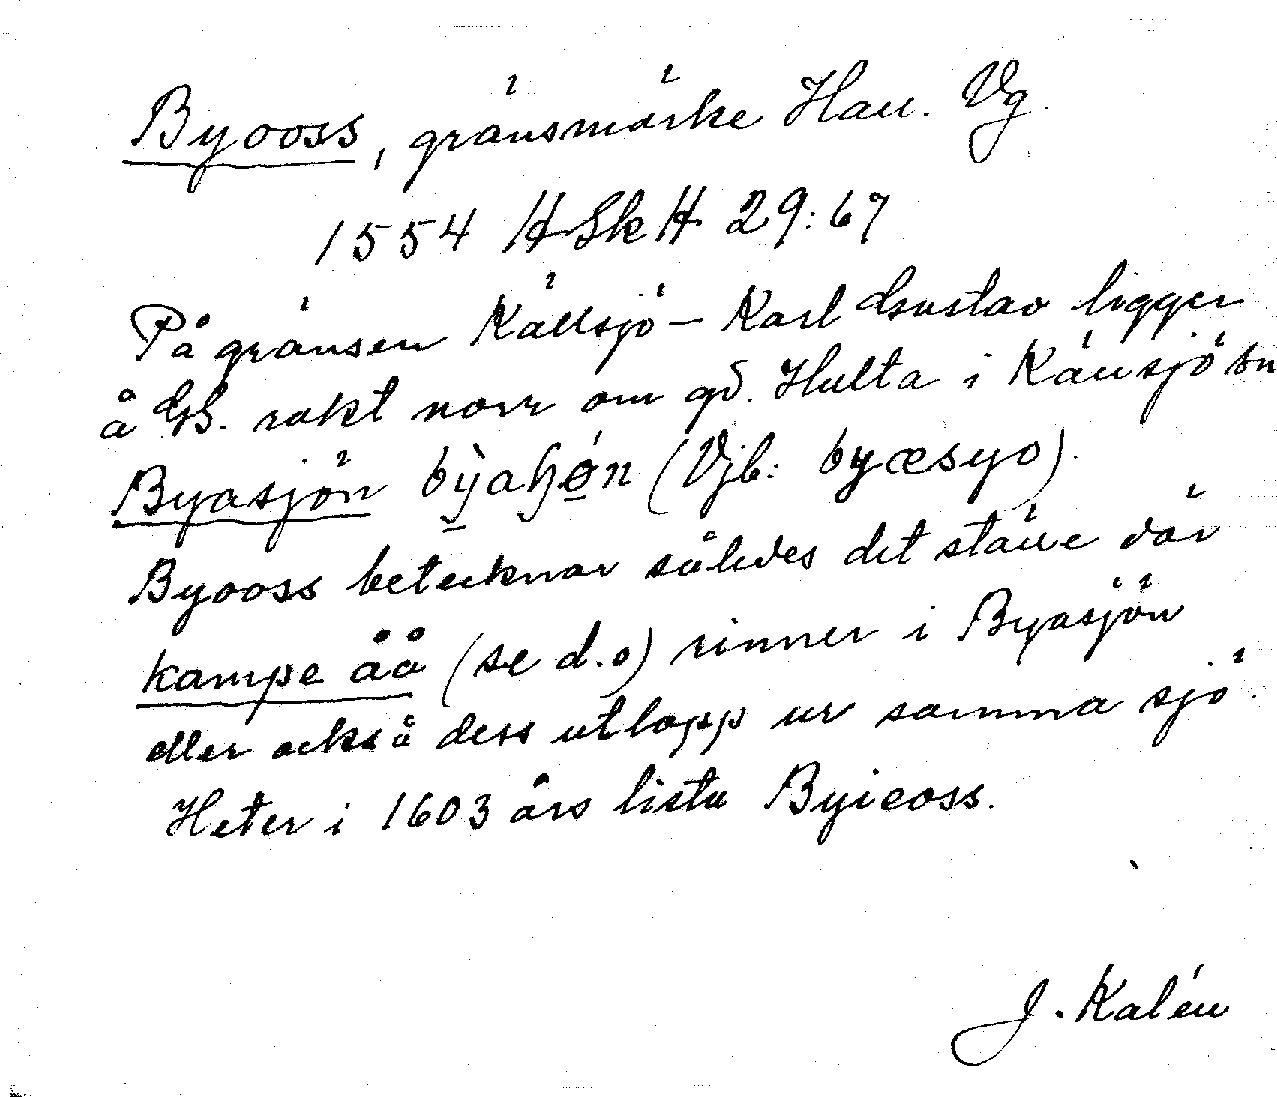 Byooss, gränsmärke Hall. Vg.
1554 HSkH 29:67
På gränsen Källsjö – Karl Gustav ligger
å GS. rakt norr om gd. Hulta i Källsjö sn
Byasjön bỳaɧón (Vjb: byæsyo).
Byooss betecknar således det ställe där
kampe åå (se d.o) rinner i Byasjön
eller också dess utlopp ur samma sjö.
Heter i 1603 års lista Byieoss.
J. Kalén